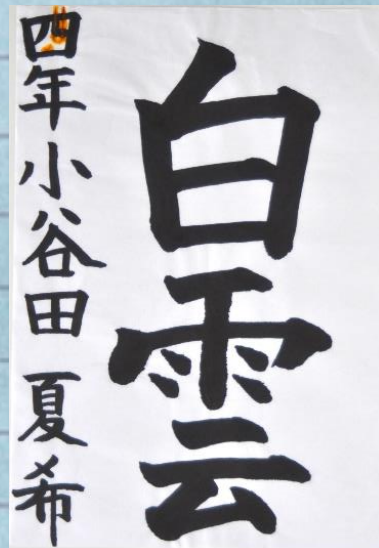 白雲
四年小谷田夏希